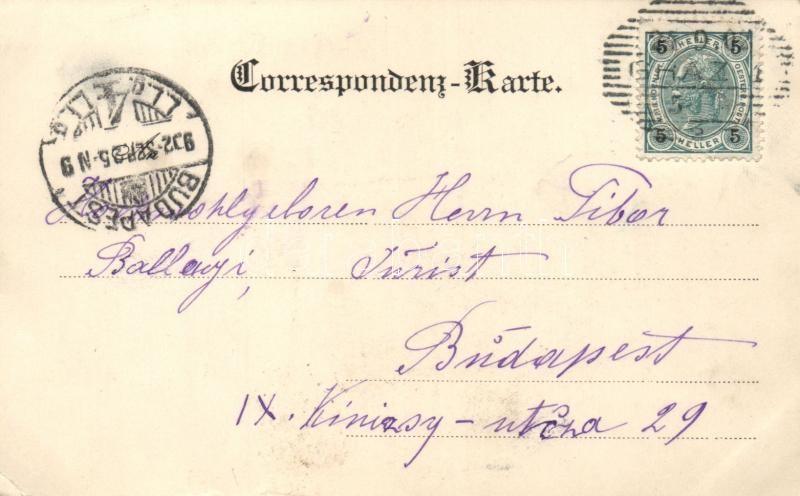 Correspondenz-Karte.
5 HELLER 5
5 HELLER 5
BUDAPEST
Hochwohlgeboren Herrn Tibor
Ballagi, Jurist
Budapest
IX. Kinizsy-utcza 29